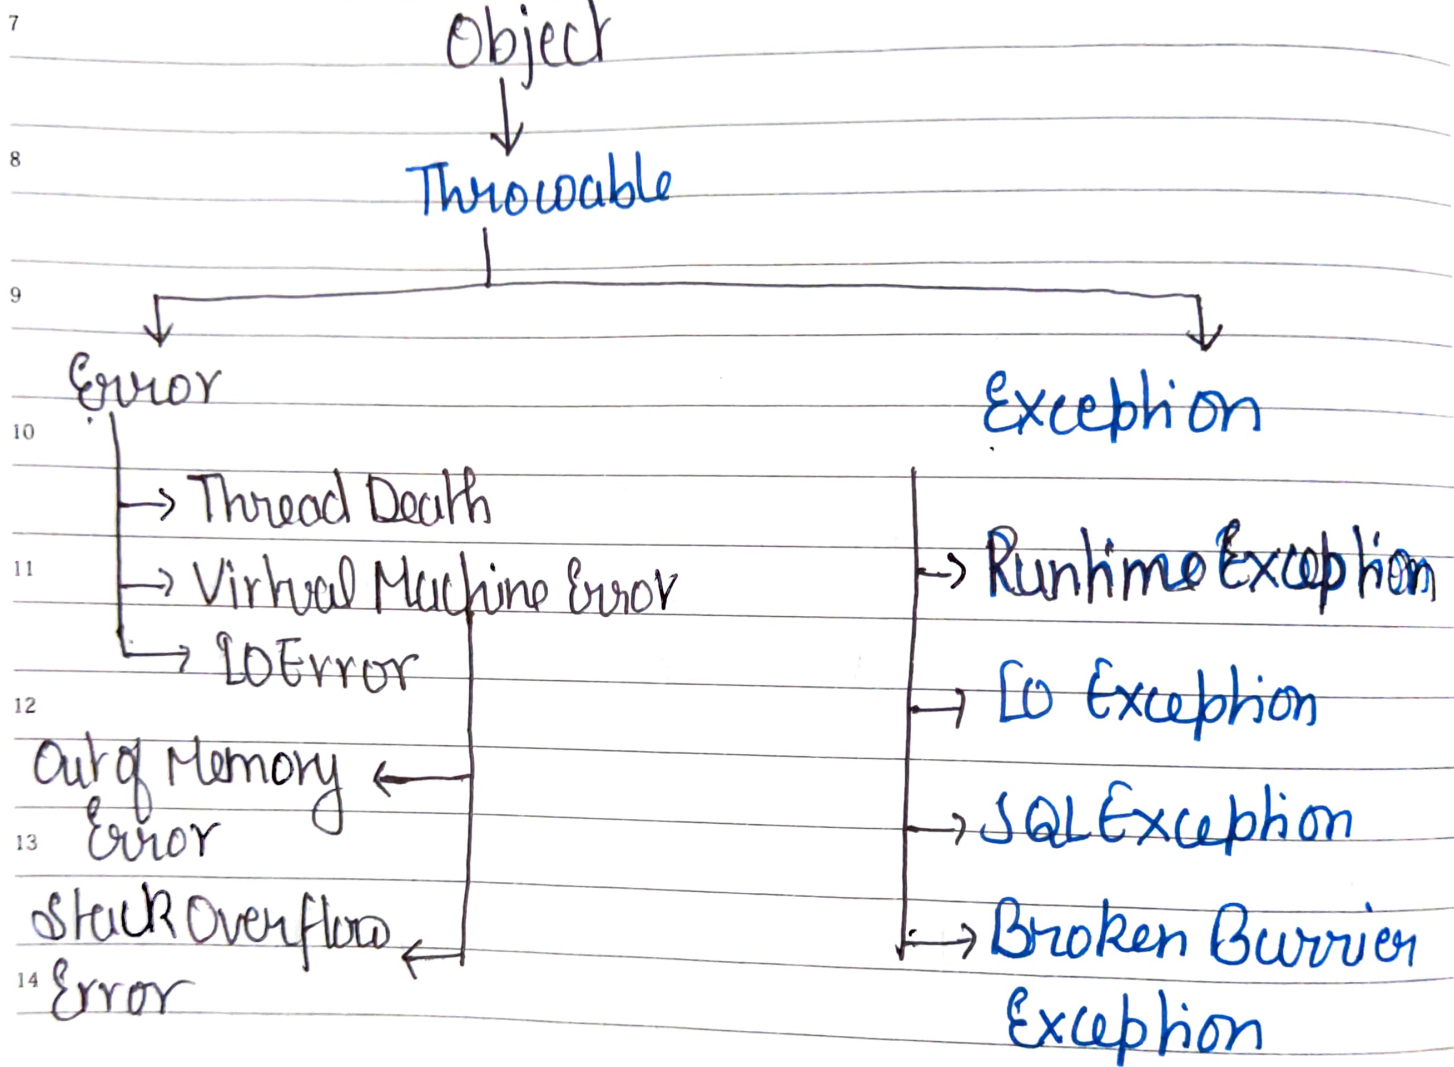 7
Object
8
Throwable
9
Error
Exception
10
Thread Death
11
Virtual Machine Error
IO Error
12
Out of Memory
Error
13
Stack Overflow
Error
14
Runtime Exception
IO Exception
SQL Exception
Broken Barrier
Exception